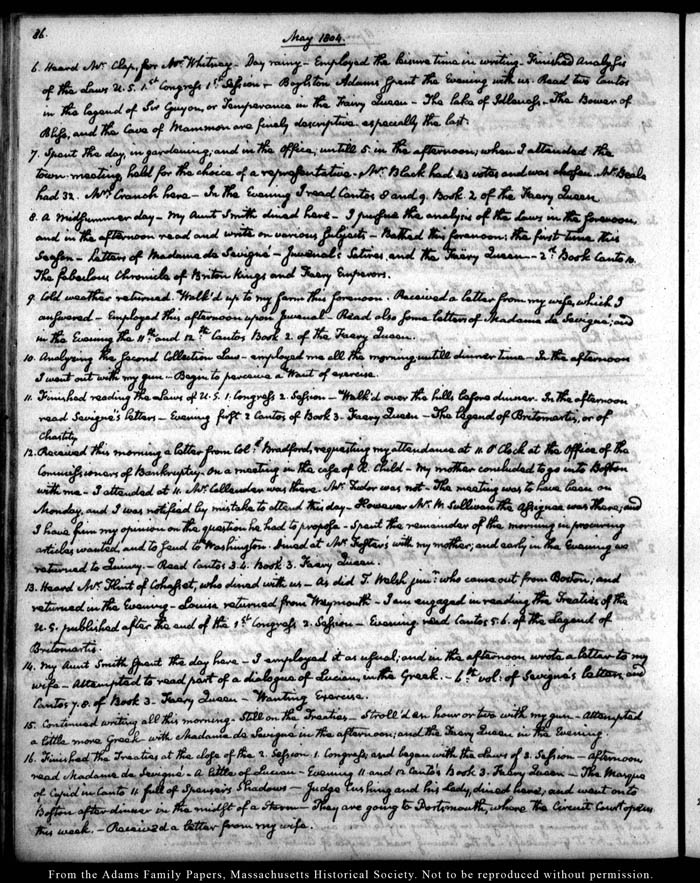 86.
May 1804.
6. Heard Mr. Clap, for Mr. Whitney - Day rainy - Employed the leisure time in writing - Finished Analysis
of the Laws U.S. 1st Congress 1st Session - Boylston Adams spent the Evening with us. Read two Cantos
in the legend of Sir Guyon, or Temperance in the Faery Queen - The Lake of Idleness - The Bower of
Bliss, and the Cave of Mammon are finely descriptive especially the last.
7. Spent the day, in gardening, and in the office, untill 5. in the afternoon; when I attended the
town-meeting held for the choice of a representative - Mr. Black had 43 votes and was chosen. Mr. Beale
had 32. Mrs. Cranch here - In the Evening I read Cantos 8 and 9. Book 2 of the Faery Queen
8. A midsummer day - my Aunt Smith dined here - I pursue the analysis of the Laws in the forenoon,
and in the afternoon read and write on various subjects - Bathed this forenoon; the first time this
Season - Letters of Madame de Sevigné - Juvenal's Satires and the Faery Queen - 2d Book Canto 10.
The fabulous Chronicle of Briton Kings and Faery Emperors.
9. Cold weather returned. Walk'd up to my farm this forenoon. Received a letter from my wife, which I
answered - Employed this afternoon upon Juvenal - Read also some letters of Madame de Sevigné; and
in the Evening the 11th and 12th Cantos Book 2. of the Faery Queen.
10. Analyzing the Second Collection Law - employed me all the morning, untill dinner time - In the afternoon
I went out with my gun - Begin to perceive a Want of exercise.
11. Finished reading the Laws of U.S. 1. Congress 2. Session - Walk'd over the hills before dinner. In the afternoon
read Sevigné's letters - Evening first 2 Cantos of Book 3. Faery Queen - The Legend of Britomartis, or of
Chastity
12. Received this morning a letter from Coll. Bradford, requesting my attendance at 11 O'Clock at the Office of the
Commissioners of Bankruptcy. On a meeting in the case of R. Child - My mother concluded to go into Boston
with me - I attended at 11. Mr. Callender was there. Mr. Tudor was not - The meeting was to have been on
Monday, and I was notified by mistake to attend this day - However Mr. W. Sullivan the Assignee was there; and
I have him my opinion on the question he had to propose - Spent the remainder of the morning in procuring
articles wanted, and to send to Washington. Dined at Mr. Foster's with my mother; and early in the Evening we
returned to Quincy. - Read Cantos 3.4. Book 3. Faery Queen.
13. Heard Mr. Flint of Cohasset, who dined with us - As did T. Welsh junr. who came out from Boston; and
returned in the Evening - Louisa returned from Weymouth - I am engaged in reading the Treaties of the
U.S. published after the end of the 1st Congress 2. Session - Evening read Cantos 5.6. of the Legend of
Britomartis.
14. My Aunt Smith spent the day here - I employed it as usual; and in the afternoon wrote a letter to my
wife - Attempted to read part of a dialogue of Lucian, in the Greek. - 6th vol: of Sevigné's letters, and
Cantos 7.8. of Book 3 - Faery Queen - Wanting Exercise.
15. Continued writing all this morning - Still on the Treaties - Stroll'd an hour or two with my gun - Attempted
a little more Greek with Madame de Sevigné in the afternoon; and the Faery Queen in the Evening.
16. Finished the Treaties at the close of the 2. Session 1. Congress, and began with the Laws of 3. Session - Afternoon
read Madame de Sevigné - A little of Lucian - Evening 11 and 12 Cantos Book 3. Faery Queen - The Masque
of Cupid in Canto 11 full of Spenser's Shadows - Judge Cushing and his Lady, dined here, and went on to
Boston after dinner in the midst of a Storm - They are going to Portsmouth, where the Circuit Court opens
this week. - Received a letter from my wife.
From the Adams Family Papers, Massachusetts Historical Society. Not to be reproduced without permission.